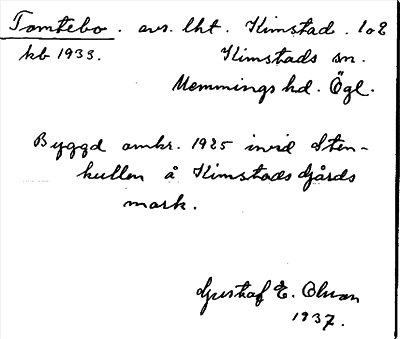 Tomtebo. avs. lht. Kimstad. 1o2
kb 1933. Kimstads sn.
Memmings hd. Ögl.
Byggd omkr. 1925 invid Sten-
kullen å Kimstads Gårds
mark.
Gustaf E. Olson
1937.